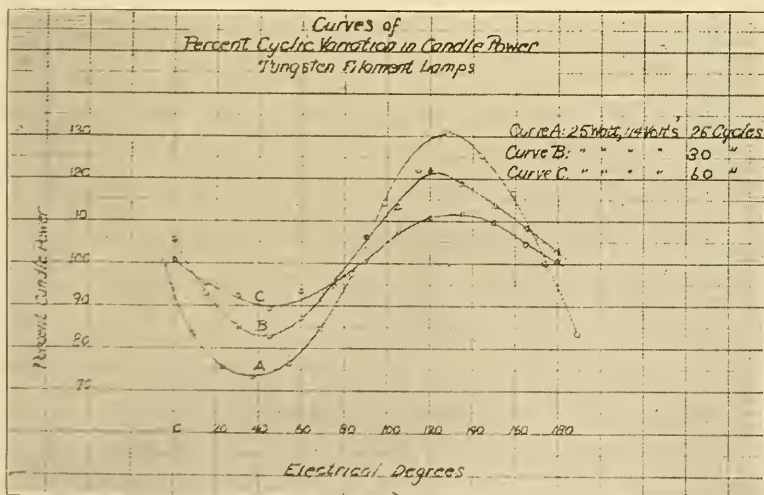 Curves of
Percent Cyclic Variation in Candle Power
Tungsten Filament Lamps
Curve A: 25 Watt, 114 Volts 25 Cycles
Curve B: " " " " 30 "
Curve C. " " " " 60 "
130
120
100
90
80
70
Percent Candle Power
C
B
A
0 20 40 60 80 100 120 140 160 180
Electrical Degrees